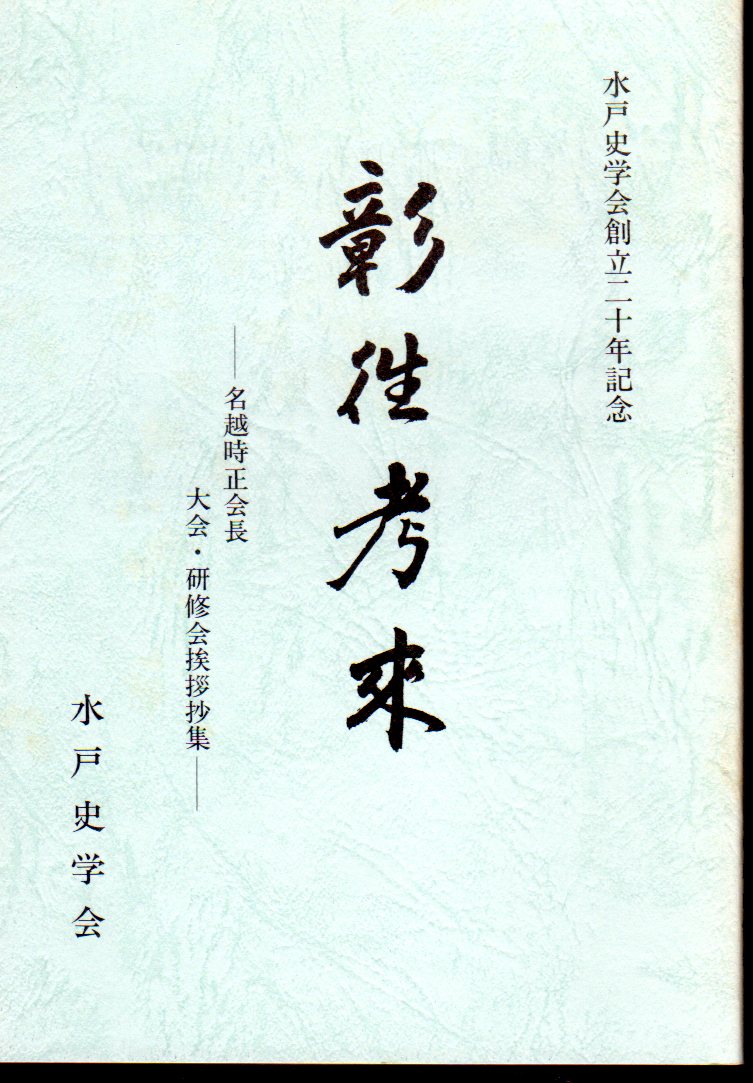 水戸史学会創立二十年記念
彰往考來
――名越時正会長
大会・研修会挨拶抄集――
水戸史学会